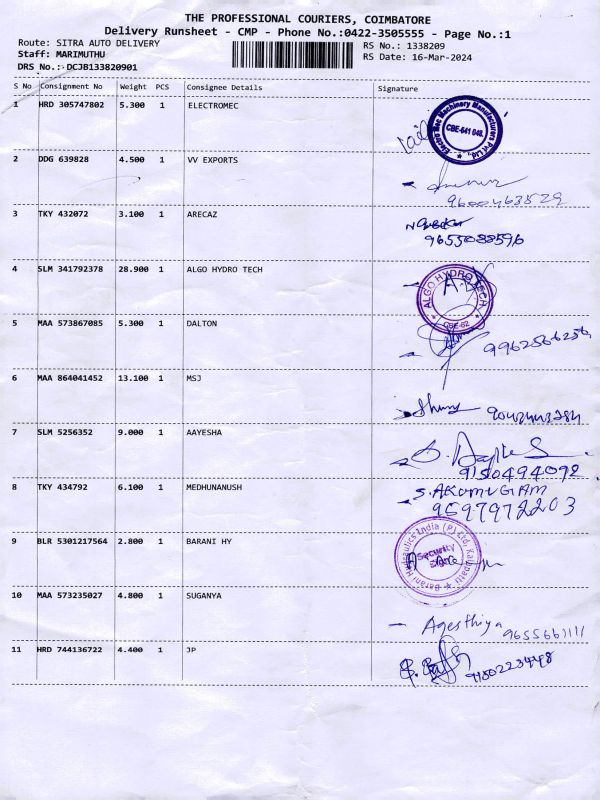 THE PROFESSIONAL COURIERS, COIMBATORE
Delivery Runsheet - CMP - Phone No.:0422-3505555 - Page No.:1
Route: SITRA AUTO DELIVERY
RS No.: 1338209
Staff: MARIMUTHU
RS Date: 16-Mar-2024
DRS No.: DCJB133820901
S No Consignment No Weight PCS Consignee Details Signature
1 HRD 305747802 5.300 1 ELECTROMEC
Electro Mec Machinery Manufacturers Pvt Ltd.,
CBE-641 048.
2 DDG 639828 4.500 1 VV EXPORTS
9600463529
3 TKY 432072 3.100 1 ARECAZ
9655038596
4 SLM 341792378 28.900 1 ALGO HYDRO TECH
ALGO HYDRO TECH
CBE-62
5 MAA 573867085 5.300 1 DALTON
9962566256
6 MAA 864041452 13.100 1 MSJ
7 SLM 5256352 9.000 1 AAYESHA
9150494092
8 TKY 434792 6.100 1 MEDHUNANUSH
S. ARUMUGAM
9597972203
9 BLR 5301217564 2.800 1 BARANI HY
Barani Hydraulics India (P) Ltd,
Security
10 MAA 573235027 4.800 1 SUGANYA
Agesthiya
9655661111
11 HRD 744136722 4.400 1 JP